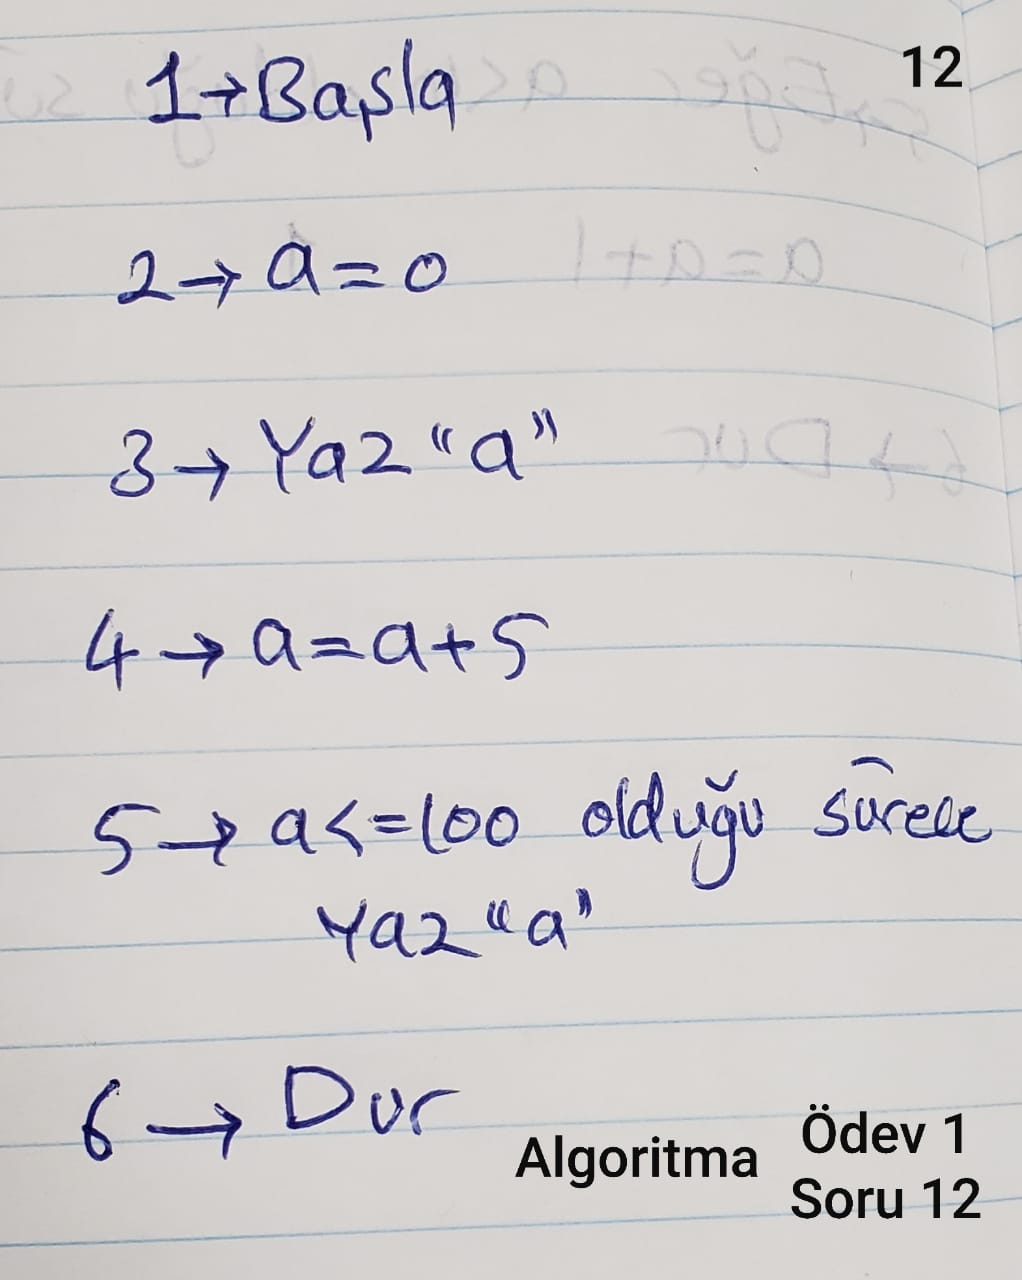 12
1→Başla
2→ a=0
3→ Yaz "a"
4→ a=a+5
5→ a<=100 olduğu sürece
Yaz "a"
6→ Dur
Algoritma Ödev 1
Soru 12